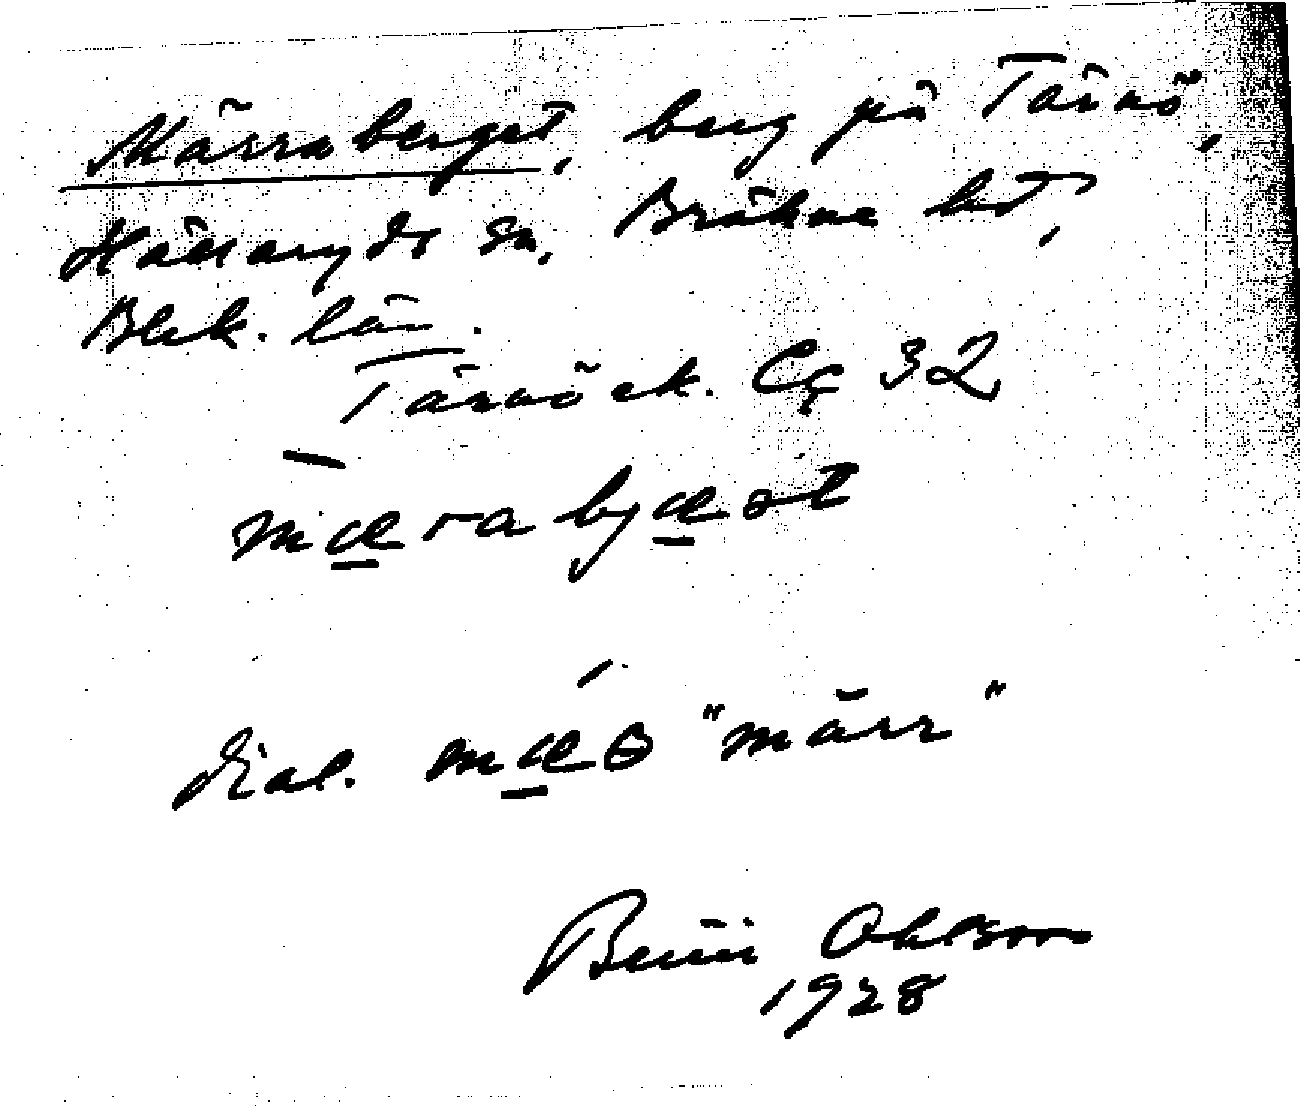 Märraberget, berg på Tärnö,
Hällaryds sn, Bräkne hd,
Blek. län.
Tärnö ek. Cç 32
mæra bjæət
dial. mæɵ "märr"
Bertil Ohlsson
1928